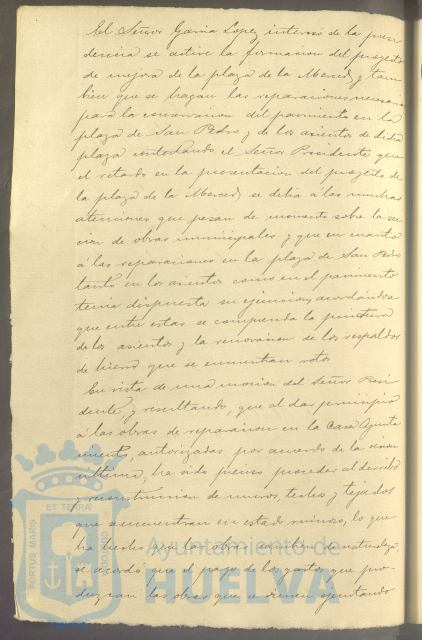 El Señor Garcia Lopez interesó de la presi
dencia se active la formacion del proyecto
de mejora de la plaza de la Merced, y tam
bien que se hagan las reparaciones necesarias
para la conservacion del pavimento en la
plaza de San Pedro y de los asientos de dicha
plaza contestando el Señor Presidente que
el retardo en la presentacion del proyecto de
la plaza de la Merced se debia á las muchas
atenciones que pesan de momento sobre la sec
cion de obras municipales y que en cuanto
á las reparaciones en la plaza de San Pedro
tanto en los asientos como en el pavimento
tenia dispuesta su ejecucion, acordándose
que entre estas se comprenda la pintura
de los asientos y la renovacion de los respaldos
de hierro que se encuentran rotos
En vista de una mocion del Señor Presi
dente, y resultando, que al dar principio
á las obras de reparacion en la Casa Ayunta
miento, autorizadas por acuerdo de la sesion
ultima, ha sido preciso proceder al derribo
y reconstruccion de muros, techos y tejados
que se encuentran en estado ruinoso, lo que
ha hecho que las obras cambien de naturaleza,
se acordó que el pago de los gastos que pro
duzcan las obras que se vienen ejecutando
PORTUS MARIS
ET TERRÆ
CUSTODIA
Ayuntamiento de
HUELVA